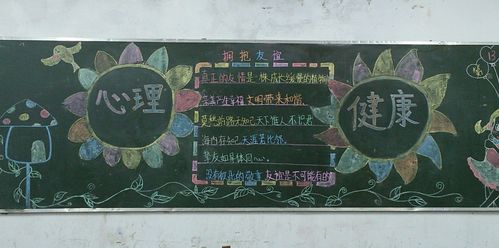 拥抱友谊
心理
真正的友情是一株成长缓慢的植物
完美产生幸福 文明带来和谐
莫愁前路无知己天下谁人不识君
海内存知己天涯若比邻
挚友如异体同心。
没有彼此的敬重友谊是不可能有的
健康